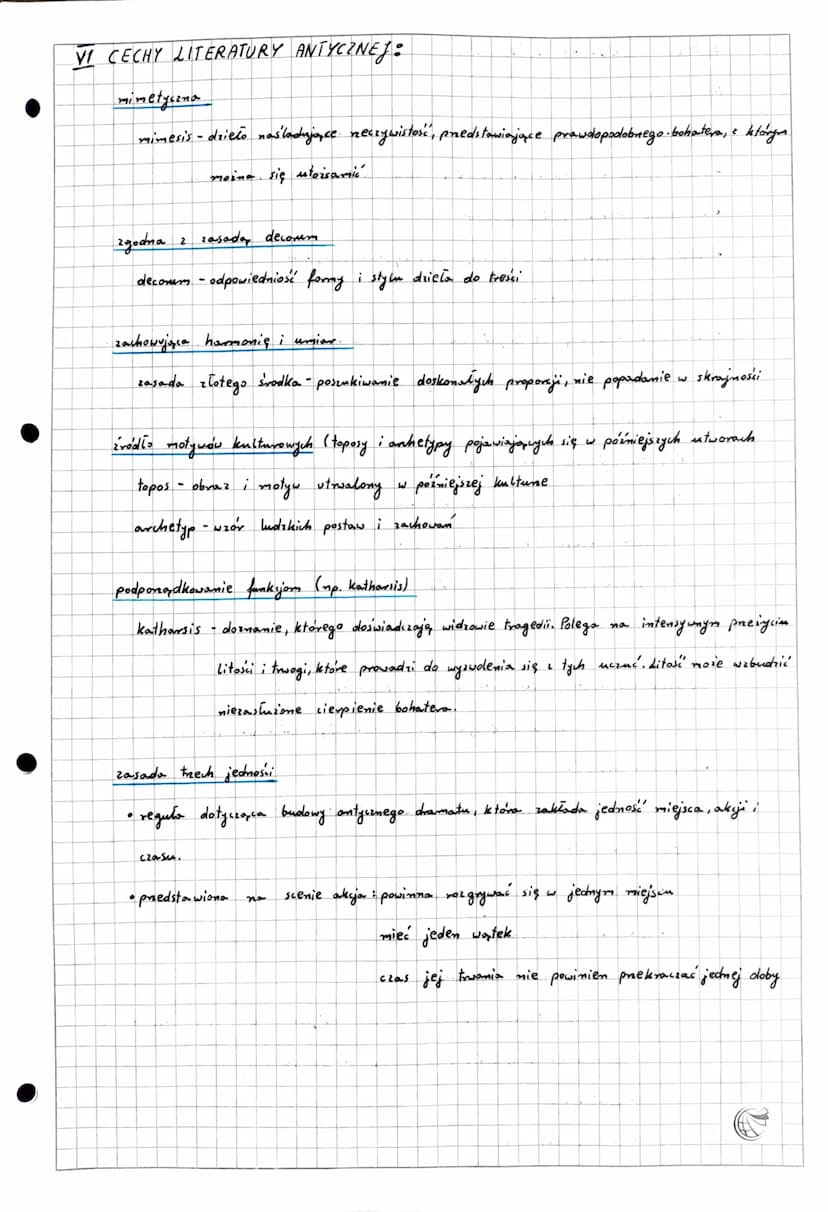 VI CECHY LITERATURY ANTYCZNEJ:
mimetyczna
mimesis - dzieło naśladujące rzeczywistość, przedstawiające prawdopodobnego bohatera, z którym
można się utożsamić
zgodna z zasadą decorum
decorum - odpowiedniość formy i stylu dzieła do treści
zachowująca harmonię i umiar
zasada złotego środka - poszukiwanie doskonałych proporcji, nie popadanie w skrajności
źródło motywów kulturowych (toposy i archetypy pojawiających się w późniejszych utworach
topos - obraz i motyw utrwalony w późniejszej kulturze
archetyp - wzór ludzkich postaw i zachowań
podporządkowanie funkcjom (np. katharsis)
katharsis - doznanie, którego doświadczają widzowie tragedii. Polega na intensywnym przeżyciu
litości i trwogi, które prowadzi do wyzwolenia się z tych uczuć. Litość może wzbudzić
niezasłużone cierpienie bohatera.
zasada trzech jedności
• reguła dotycząca budowy antycznego dramatu, która zakłada jedność miejsca, akcji i
czasu.
• przedstawiona na scenie akcja: powinna rozgrywać się w jednym miejscu
mieć jeden wątek
czas jej trwania nie powinien przekraczać jednej doby